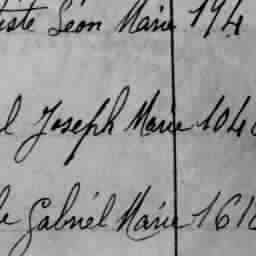 iste Léon Marie 194
l Joseph Marie 104
le Gabriel Marie 161